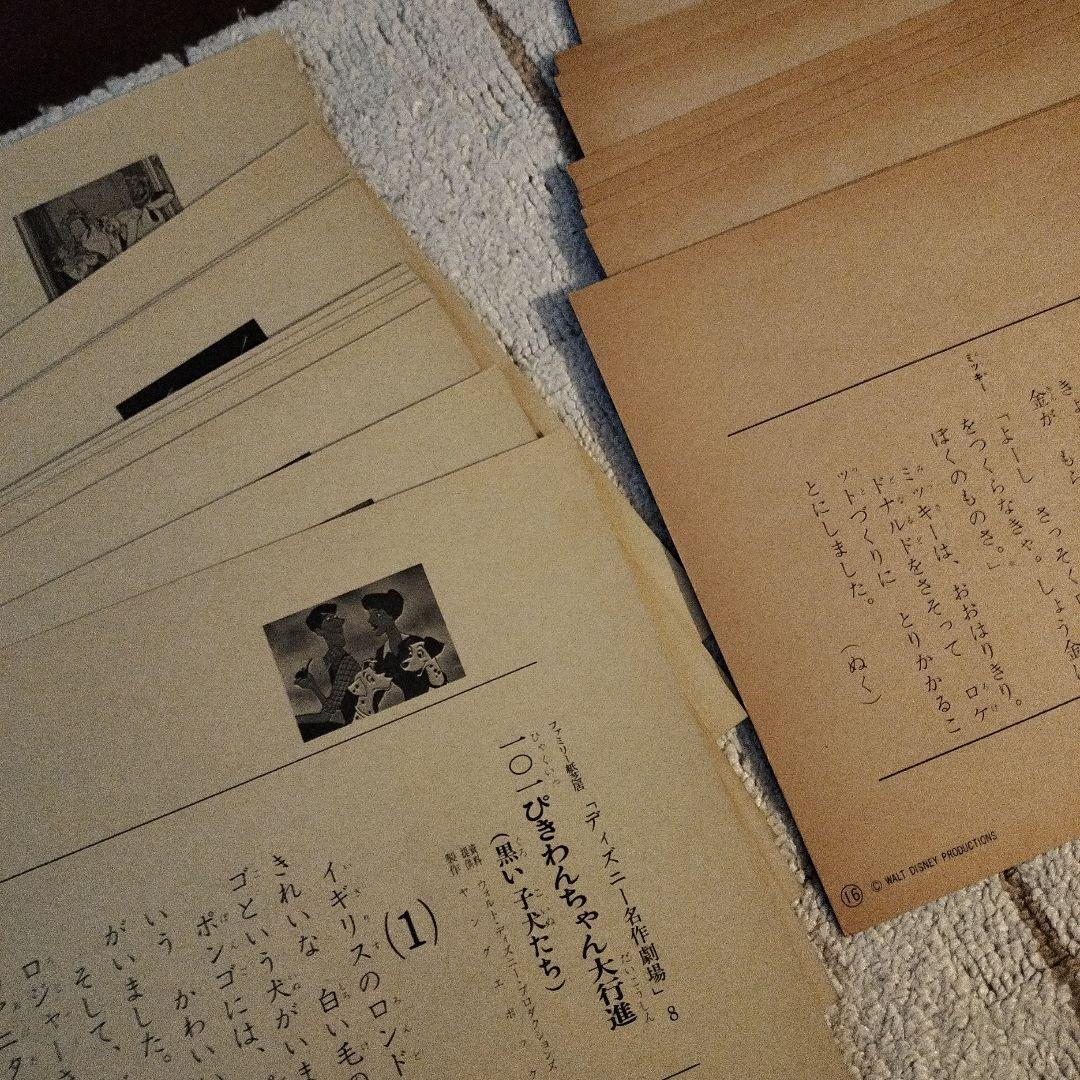 ファミリー紙芝居 「ディズニー名作劇場」 8
一〇一ぴきわんちゃん大行進
(黒い子犬たち)
資料提供 ウォルト・ディズニー・プロダクションズ
製作 ヤングエポック
(1)
イギリスのロンド
きれいな 白い毛の
ゴという犬がいま
ポンゴには、
いう かわい
がいました。
そして、
ロジャーさ
ニタ
金が も
「よーし さっそく
をつくらなきゃ。しょう金
ミッキー
ぼくのものさ。」
ミッキーは、おおはりきり。
ドナルドをさそって ロケ
ットづくりに とりかかるこ
とにしました。 (ぬく)
16 © WALT DISNEY PRODUCTIONS